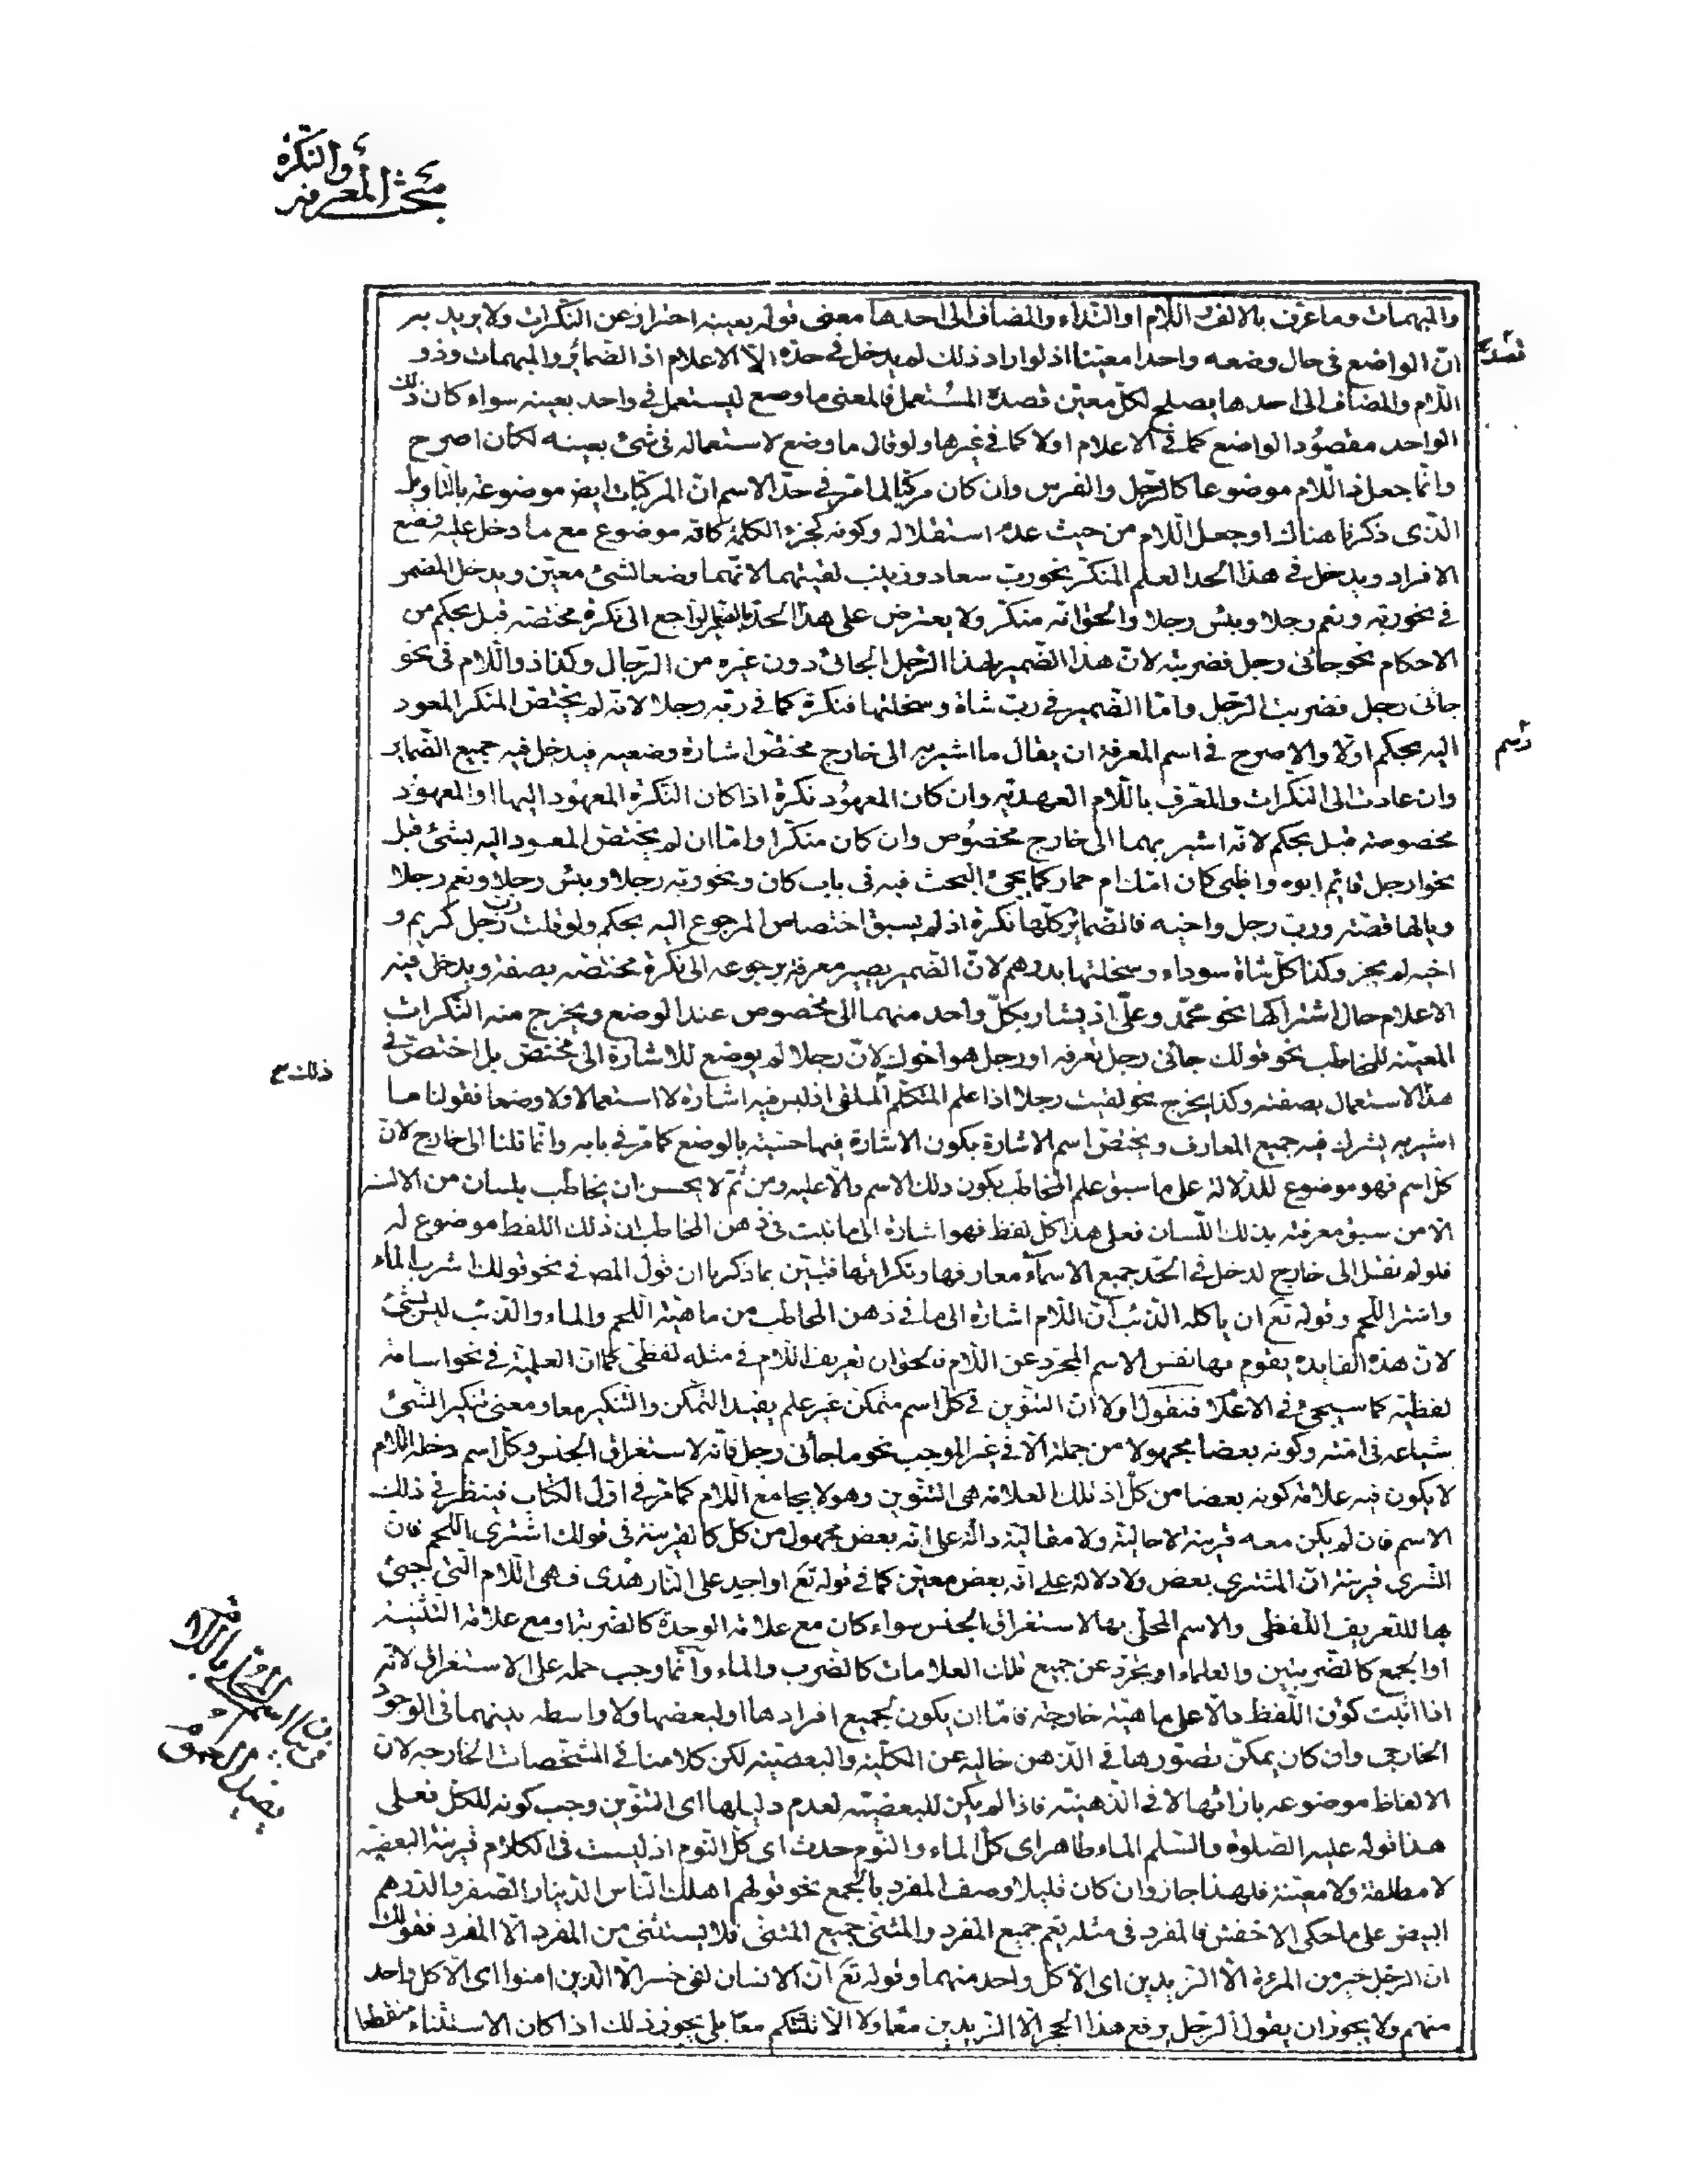 مبحث المعرفة والنكرة
والمبهمات وما عرف بالالف واللام او النداء والمضاف الى احدها معنى قوله بعينه احتراز عن النكرات ولا يريد به
انّ الواضع فى حال وضعه واحدا معيّنا اذ لو اراد ذلك لم يدخل فى حدّه الّا الاعلام اذ الضمائر والمبهمات وذو
اللّام والمضاف الى احدها يصلح لكلّ معيّن قصده المستعمل فالمعنى ما وضع ليستعمل فى واحد بعينه سواء كان ذلك
الواحد مقصود الواضع كما فى الاعلام اولا كما فى غيرها ولو قال ما وضع لاستعماله فى شئ بعينه لكان اصرح
وانّما جعل ذا اللّام موضوعا كالرّجل والفرس وان كان مركّبا لما مرّ فى حدّ الاسم انّ المركّبات ايضا موضوعة بالتاويل
الّذى ذكرنا هناك او جعل اللّام من حيث عدم استقلاله وكونه كجزء الكلمة كانّه موضوع مع ما دخل عليه وضع
الافراد ويدخل فى هذا الحد العلم المنكّر نحو ربّ سعاد وزينب لقيتهما لانّهما وضعا لشئ معيّن ويدخل المضمر
فى نحو ربّه ونعم رجلا وبئس رجلا والحقّ انّه منكّر ولا يعترض على هذا الحدّ بالضمير الراجع الى نكرة مختصّة قبل بحكم من
الاحكام نحو جائنى رجل فضربته لانّ هذا الضمير لهذا الرّجل الجائى دون غيره من الرّجال وكذا ذو اللّام فى نحو
جائنى رجل فضربت الرّجل وامّا الضّمير فى ربّ شاة وسخلتها فنكرة كما فى ربّه رجلا لانّه لم يختصّ المنكر المعود
اليه بحكم اوّلا والاصرح فى رسم المعرفة ان يقال ما اشير به الى خارج مختصّ اشارة وضعيه فيدخل فيه جميع الضّماير
وان عادت الى النكرات والمعرّف باللّام العهديّه وان كان المعهود نكرة اذا كان النكرة المعهود اليها او المعهود
مخصوصة قبل بحكم لانّه اشير بهما الى خارج مخصوص وان كان منكّرا وامّا ان لم يختصّ المعود اليه بشئ قبل
نحو ارجل قائم ابوه واظبى كان امّك ام حمار كما يجئ البحث فيه فى باب كان ونحو ربّه رجلا وبئس رجلا ونعم رجلا
ويالها قصّة وربّ رجل واخيه فالضّمائر كلّها نكرة اذ لم يسبق اختصاص المرجوع اليه بحكم ولو قلت ربّ رجل كريم و
اخيه لم يجز وكذا كلّ شاة سوداء وسخلتها بدرهم لانّ الضّمير يصير معرفة برجوعه الى نكرة مختصّة بصفة ويدخل فيه
الاعلام حال اشتراكها نحو محمّد وعلّى اذ يشار بكلّ واحد منهما الى مخصوص عند الوضع ويخرج منه النّكرات
المعيّنه للمخاطب نحو قولك جائنى رجل تعرفه او رجل هو اخوك لانّ رجلا لم يوضع للاشارة الى مختصّ بل اختصّ فى
هذا الاستعمال بصفته وكذا يخرج نحو لقيت رجلا اذا علم المتكلّم الملقى اذ ليس فيه اشارة لا استعمالا ولا وضعا فقولنا ما
اشير به يشترك فيه جميع المعارف ويختصّ اسم الاشارة بكون الاشارة فيها حسّية بالوضع كما مرّ فى بابه وانّما قلنا الى خارج لانّ
كلّ اسم فهو موضوع للدّلالة على ما سبق علم المخاطب بكون ذلك الاسم دالّا عليه ومن ثمّ لا يحسن ان يخاطب بلسان من الالسنة
الّا من سبق معرفته بذلك اللّسان فعلى هذا كلّ لفظ فهو اشارة الى ما ثبت فى ذهن المخاطب ان ذلك اللفظ موضوع له
فلو لم نقل الى خارج لدخل فى الحّد جميع الاسماء معارفها ونكراتها فتبيّن بما ذكرنا ان قول المص فى نحو قولك اشرب الماء
واشتر اللّحم وقوله تعَ ان ياكله الذّئب انّ اللّام اشارة الى ما فى ذهن المخاطب من ماهيّة اللّحم والماء والذّئب ليس بشئ
لانّ هذه الفايده يقوم بها نفس الاسم المجرّد عن اللّام فالحقّ ان تعريف اللّام فى مثله لفظىّ كما انّ العلميّة فى نحو اسامة
لفظيّة كما سيجئ فى الاعلام فنقول اولا انّ التنوين فى كلّ اسم متمكّن غير علم يفيد التّمكّن والتّنكير معا ومعنى تنكير الشّئ
شياعه فى امّته وكونه بعضا مجهولا من جملة الّا فى غير الموجب نحو ما جائنى رجل فانّه لاستغراق الجنس وكلّ اسم دخله اللّام
لا يكون فيه علامة كونه بعضا من كلّ اذ تلك العلامة هى التنوين وهو لا يجامع اللّام كما مرّ فى اوّل الكتاب فينظر فى ذلك
الاسم فان لم يكن معه قرينة لا حاليّة ولا مقاليّة دالّة على انّه بعض مجهول من كلّ كالقرينة فى قولك اشترى اللّحم فانّ
الشّرى قرينة انّ المشترى بعض ولا دلالة على انّه بعض معيّن كما فى قوله تعَ او اجد على النّار هدًى فهى اللّام الّتى تجئ
بها للتعريف اللّفظى والاسم المحلّى بها لاستغراق الجنس سواء كان مع علامة الوحدة كالضّربة او مع علامة التّثنية
او الجمع كالضّربتين والعلماء او تجرّد عن جميع تلك العلامات كالضّرب والماء وانّما وجب حمله على الاستغراق لانّه
اذا اثبت كون اللّفظ دالّا على ماهيّة خارجيّة فامّا ان يكون لجميع افرادها او لبعضها ولا واسطه بينهما فى الوجود
الخارجى وان كان يمكن تصوّرها فى الذّهن خاليه عن الكلّية والبعضيّة لكن كلامنا فى المشخّصات الخارجيه لانّ
الالفاظ موضوعه بازائها لا فى الذّهنيّة فاذا لم يكن للبعضيّة لعدم دليلها اى التنوين وجب كونه للكلّ فعلى
هذا قوله عليه الصّلوة والسّلم الماء طاهر اى كلّ الماء والنّوم حدث اى كلّ النّوم اذ ليست فى الكلام قرينة البعضيّه
لا مطلقة ولا معيّنة فلهذا جاز وان كان قليلا وصف المفرد بالجمع نحو قولهم اهلك النّاس الدّينار الصّفر والدّرهم
البيض على ما حكى الاخفش فالمفرد فى مثله يعمّ جميع المفرد والمثنّى جميع المثنّى فلا يستثنى من المفرد الّا المفرد فقولك
انّ الرّجل خير من المرءة الّا الزيدين اى الّا كلّ واحد منهما وقوله تعَ انّ الانسان لفى خسر الّا الّذين امنوا اى الّا كلّ واحد
منهم ولا يجوز ان يقول الرّجل يرفع هذا الحجر الّا الزّيدين معًا ولا الّا ثلثتكم معًا بلى يجوز ذلك اذا كان الاستثناء منقطعا
قصد
رسم
ذلك
فى بيان اسم المحلّى باللام
يفيد العموم